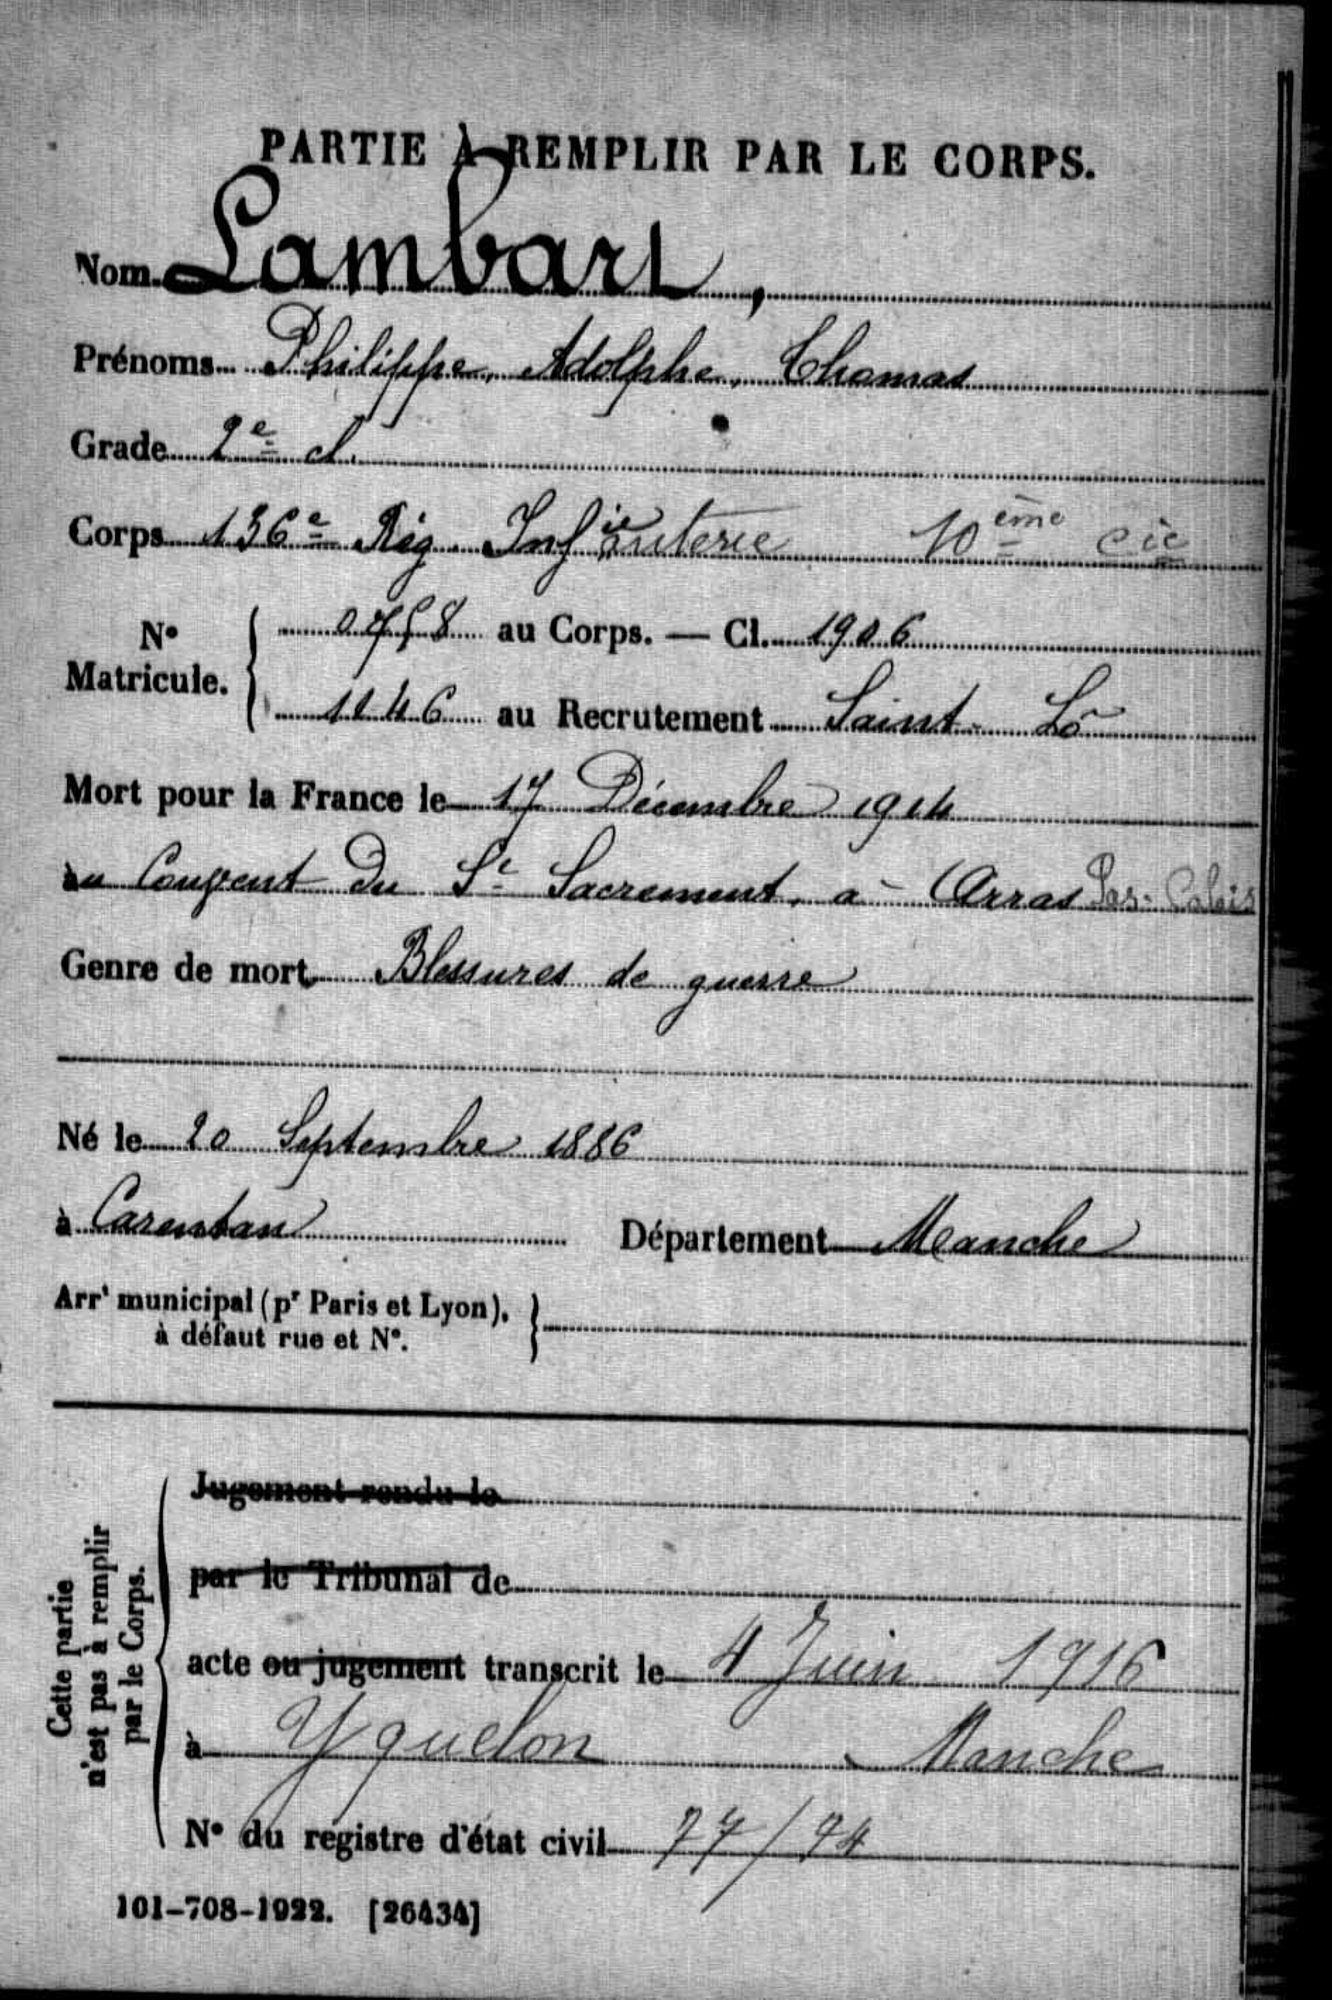 PARTIE À REMPLIR PAR LE CORPS.
Nom. Lambart,
Prénoms Philippe, Adolphe, Thomas
Grade 2e cl.
Corps 136e Rég. Infanterie 10ème Cie
N° Matricule. 0758 au Corps. — Cl. 1906
1146 au Recrutement Saint-Lô
Mort pour la France le 17 Décembre 1914
au Couvent du St Sacrement, à Arras Pas-Calais
Genre de mort Blessures de guerre
Né le 20 Septembre 1886
à Carentan Département Manche
Arrt municipal (pr Paris et Lyon),
à défaut rue et N°.
Cette partie
n'est pas à remplir
par le Corps.
Jugement rendu le
par le Tribunal de
acte ou jugement transcrit le 4 Juin 1916
à Yquelon Manche
N° du registre d'état civil 77/74
101-708-1922. [26434]